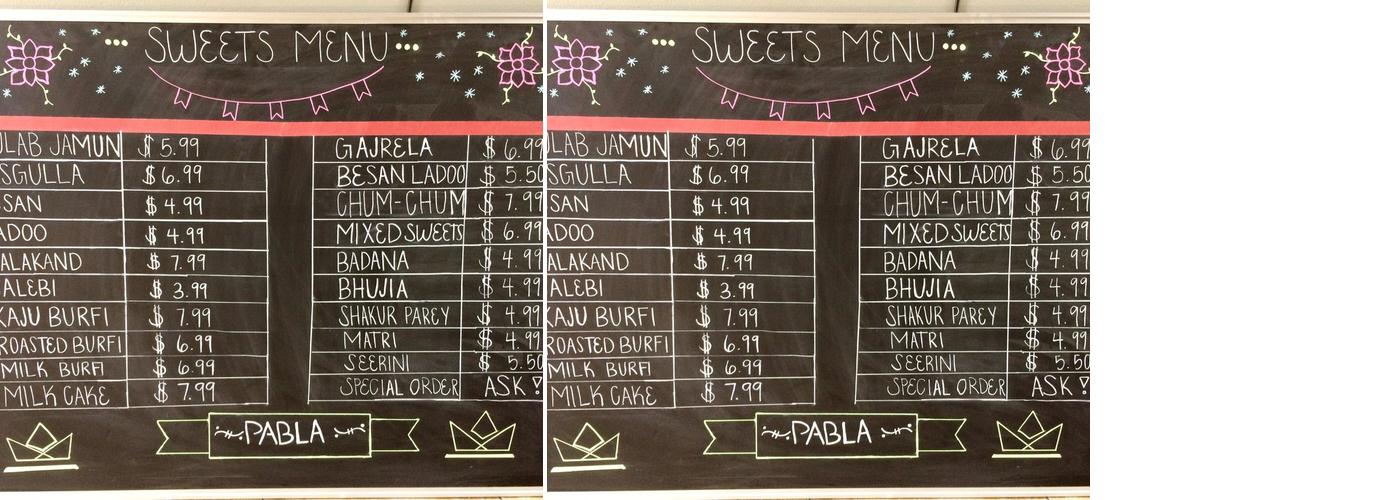 SWEETS MENU
LAB JAMUN $ 5.99
SGULLA $ 6.99
SAN $ 4.99
ADOO $ 4.99
ALAKAND $ 7.99
ALEBI $ 3.99
KAJU BURFI $ 7.99
ROASTED BURFI $ 6.99
MILK BURFI $ 6.99
MILK CAKE $ 7.99
GAJRELA $ 6.99
BESAN LADOO $ 5.50
CHUM-CHUM $ 7.99
MIXED SWEETS $ 6.99
BADANA $ 4.99
BHUJIA $ 4.99
SHAKUR PAREY $ 4.99
MATRI $ 4.99
SEERINI $ 5.50
SPECIAL ORDER ASK!
PABLA
SWEETS MENU
LAB JAMUN $ 5.99
SGULLA $ 6.99
SAN $ 4.99
ADOO $ 4.99
ALAKAND $ 7.99
ALEBI $ 3.99
KAJU BURFI $ 7.99
ROASTED BURFI $ 6.99
MILK BURFI $ 6.99
MILK CAKE $ 7.99
GAJRELA $ 6.99
BESAN LADOO $ 5.50
CHUM-CHUM $ 7.99
MIXED SWEETS $ 6.99
BADANA $ 4.99
BHUJIA $ 4.99
SHAKUR PAREY $ 4.99
MATRI $ 4.99
SEERINI $ 5.50
SPECIAL ORDER ASK!
PABLA